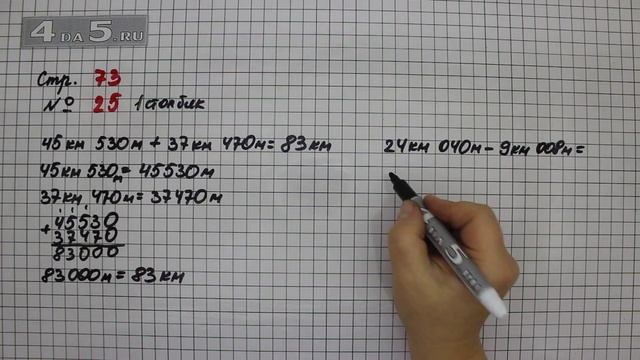 4DA5.RU
Стр. 73
№ 25 1 столбик
45 км 530 м + 37 км 470 м = 83 км
45 км 530 м = 45530 м
37 км 470 м = 37470 м
1 1 1
+ 45530
37470
83000
83000 м = 83 км
24 км 040 м - 9 км 008 м =